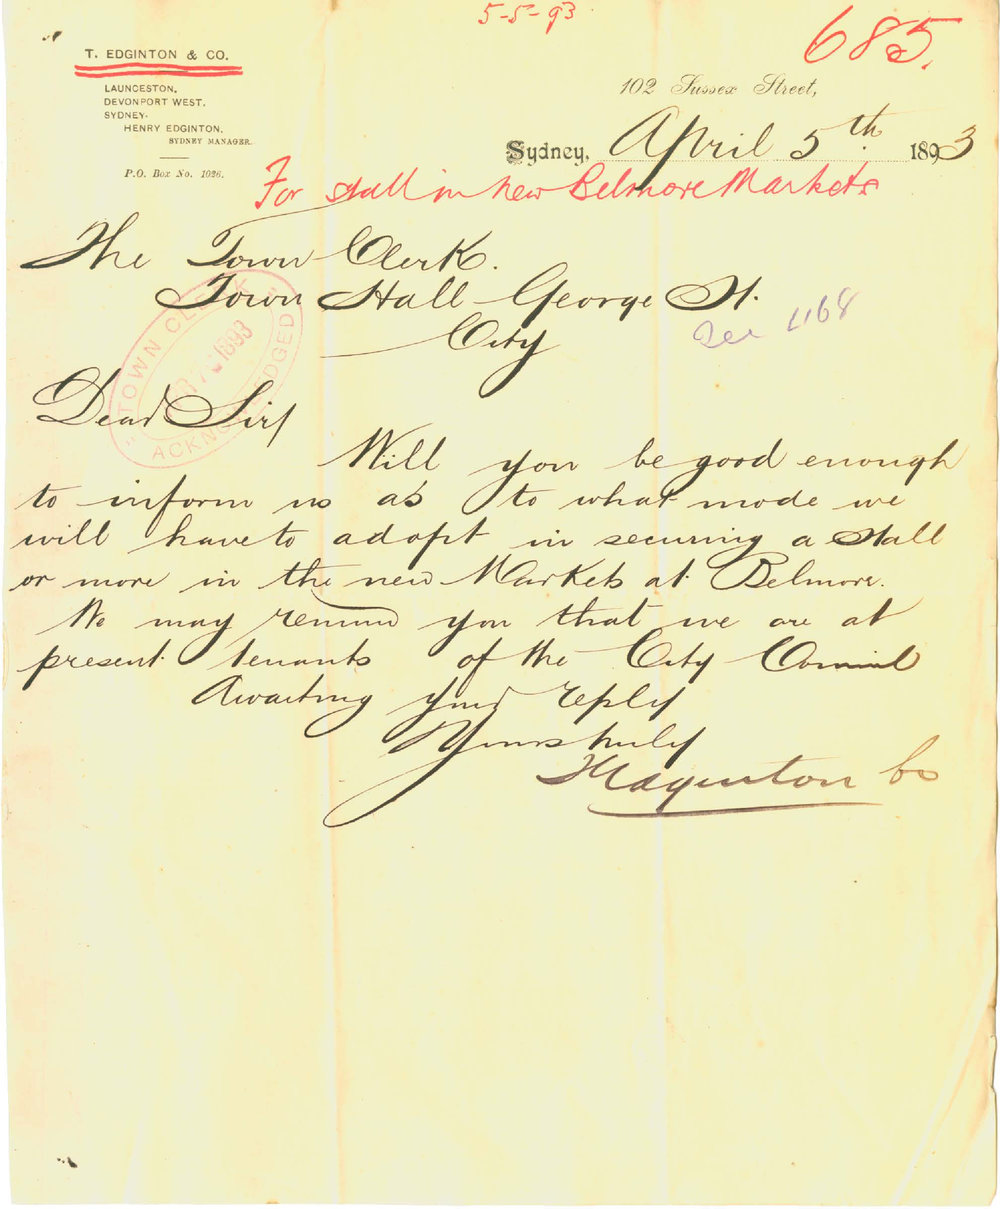 5-5-93.
685.
T. EDGINTON & CO.
LAUNCESTON,
DEVONPORT WEST,
SYDNEY.
HENRY EDGINTON,
SYDNEY MANAGER.
P.O. Box No. 1026.
102 Sussex Street,
Sydney, April 5th. 1893
For stall in new Belmore Markets
The Town Clerk.
Town Hall George St.
City
1168
"TOWN CLERK"
1893
ACKNOWLEDGED
Dear Sir/
Will you be good enough
to inform us as to what mode we
will have to adopt in securing a stall
or more in the new Markets at Belmore.
We may remind you that we are at
present tenants of the City Council
Awaiting your reply
Yours truly
T Edginton Co